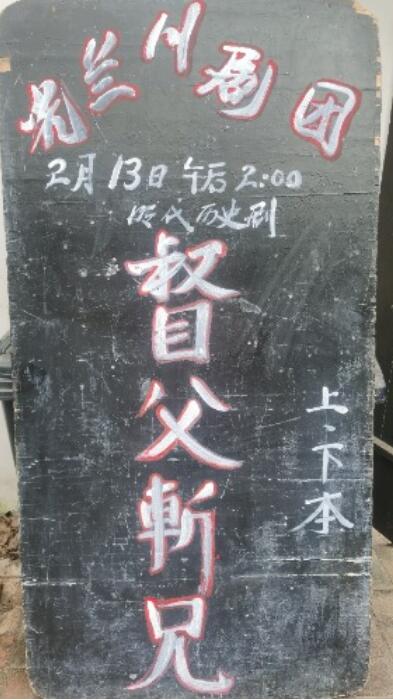 兰川剧团
2月13日 午后2:00
明代历史剧
督父斬兄
上、下本